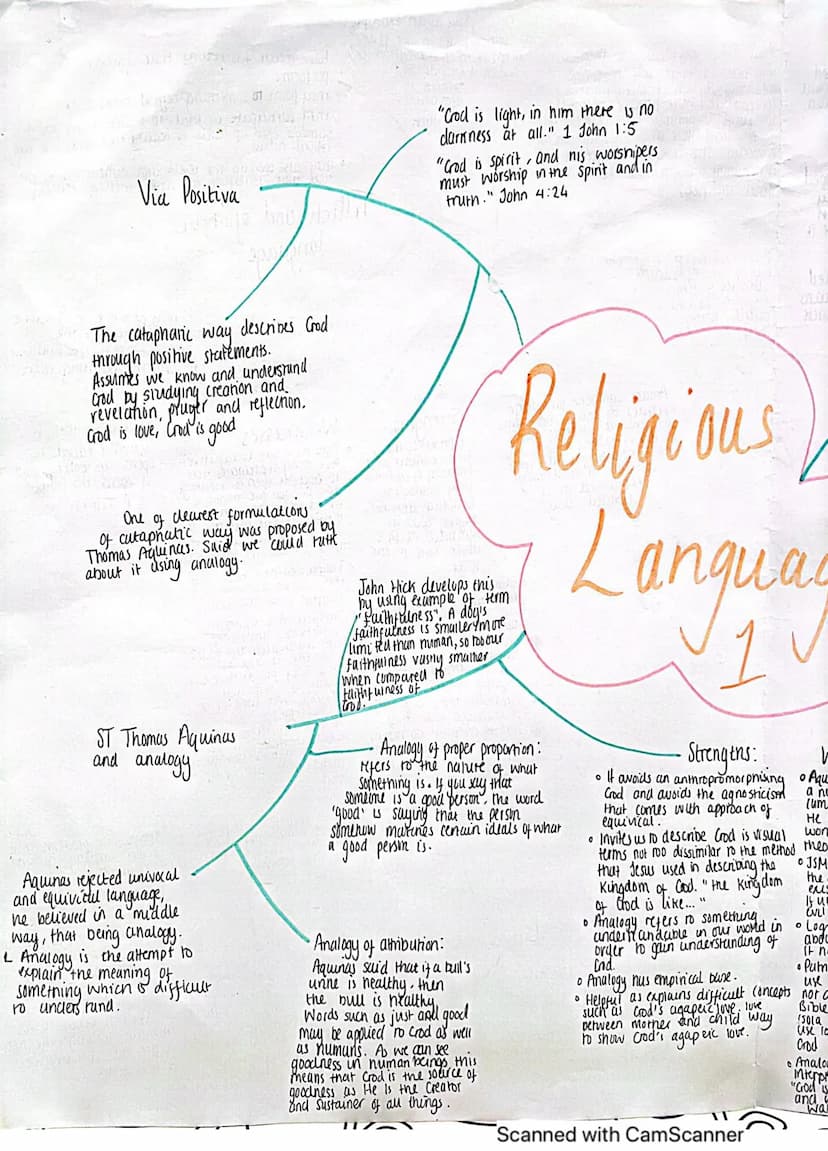 "God is light, in him there is no
darkness at all." 1 John 1:5
"God is spirit, and his worshipers
must worship in the spirit and in
truth." John 4:24
Via Positiva
The cataphatic way describes God
through positive statements.
Assumes we know and understand
God by studying creation and
revelation, prayer and reflection.
God is love, God is good
One of clearest formulations
of cataphatic way was proposed by
Thomas Aquinas. Said we could talk
about it using analogy.
Religious
Languag
1
John Hick develops this
by using example of term
"Faithfulness". A dog's
faithfulness is smaller/more
limited than human, so too our
faithfulness vastly smaller
when compared to
faithfulness of
God.
ST Thomas Aquinas
and analogy
Analogy of proper proportion:
refers to the nature of what
something is. If you say that
someone is a good person, the word
'good' is saying that the person
somehow matches certain ideals of what
a good person is.
Aquinas rejected univocal
and equivical language,
he believed in a middle
way, that being analogy.
Analogy is the attempt to
explain the meaning of
something which is difficult
to understand.
Analogy of attribution:
Aquinas said that if a bull's
urine is healthy, then
the bull is healthy
Words such as just and good
may be applied to God as well
as humans. As we can see
goodness in human beings this
means that God is the source of
goodness as He is the Creator
and Sustainer of all things.
Strengths:
• It avoids an anthropromorphising
God and avoids the agnosticism
that comes with approach of
equivical.
• Invites us to describe God is visual
terms not too dissimilar to the method
that Jesus used in describing the
Kingdom of God. "the Kingdom
of God is like..."
• Analogy refers to something
understandable in our world in
order to gain understanding of
God.
• Analogy has empirical base.
• Helpful as explains difficult concepts
such as God's agapeic love, love
between mother and child way
to show God's agapeic love.
• Aqu
a n
He
wor
theo
• JSM
the
exis
It u
evil
• Log
abo
it n
use
nor
Bible
use l
God
• Analo
"God is
and
wa
Scanned with CamScanner